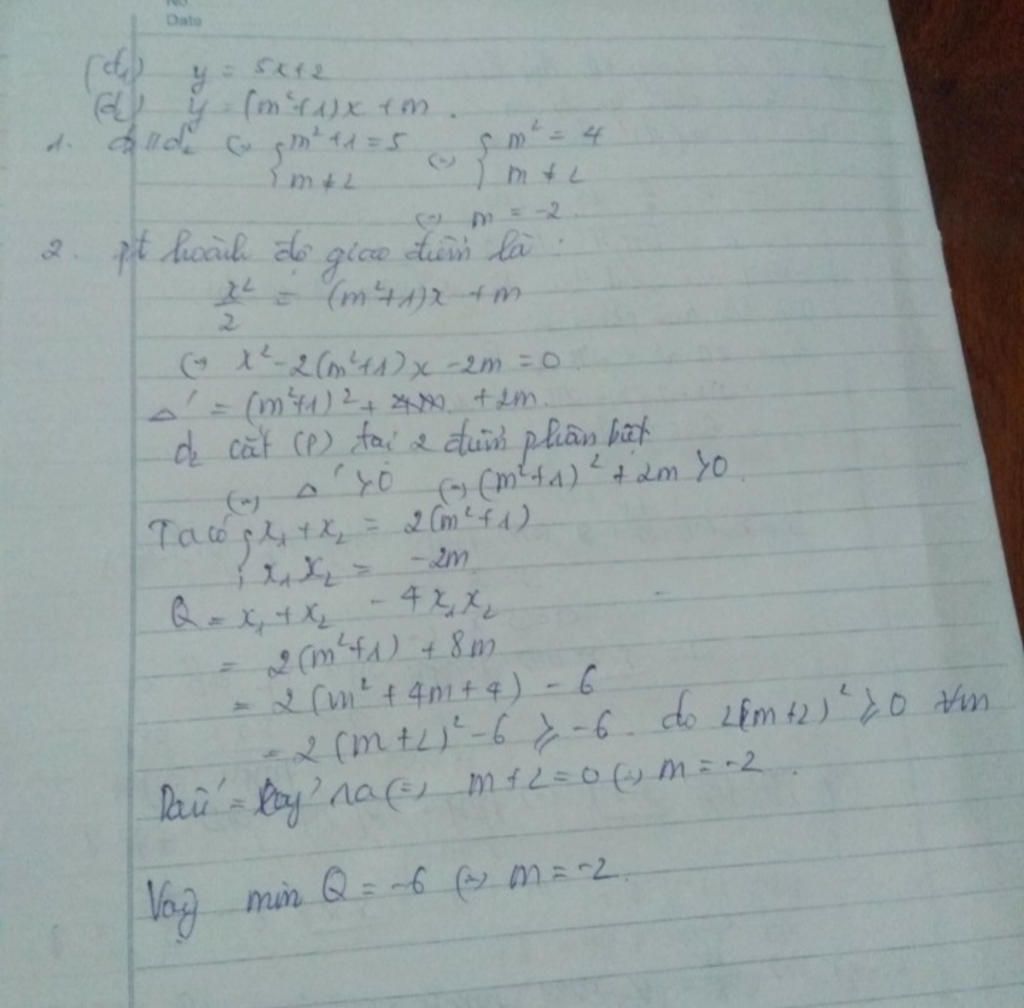 No
Date
(d₁) y = 5x+2
(d₂) y = (m²+1)x + m.
1. d₁ // d₂ (=) { m²+1 = 5 (=) { m² = 4
{ m ≠ 2 { m ≠ 2
(=) m = -2.
2. pt hoành độ giao điểm là :
x²/2 = (m²+1)x + m
(=) x² - 2(m²+1)x - 2m = 0
Δ' = (m²+1)² + 2m.
d₂ cắt (P) tại 2 điểm phân biệt
(=) Δ' > 0 (=) (m²+1)² + 2m > 0.
Ta có { x₁ + x₂ = 2(m²+1)
{ x₁x₂ = -2m
Q = x₁ + x₂ - 4x₁x₂
= 2(m²+1) + 8m
= 2(m² + 4m + 4) - 6
= 2(m+2)² - 6 ≥ -6. do 2(m+2)² ≥ 0 ∀m
Dấu = xảy ra (=) m+2 = 0 (=) m = -2.
Vậy min Q = -6 (=) m = -2.